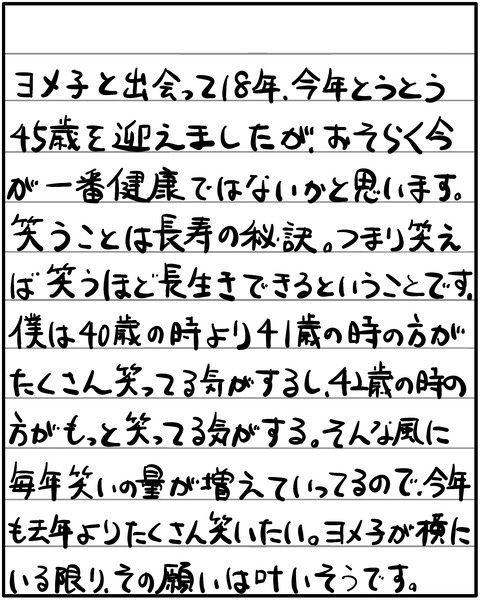 ヨメ子と出会って18年、今年とうとう
45歳を迎えましたが、おそらく今
が一番健康ではないかと思います。
笑うことは長寿の秘訣。つまり笑え
ば笑うほど長生きできるということです。
僕は40歳の時より41歳の時の方が
たくさん笑ってる気がするし、42歳の時の
方がもっと笑ってる気がする。そんな風に
毎年笑いの量が増えていってるので、今年
も去年よりたくさん笑いたい。ヨメ子が横に
いる限り、その願いは叶いそうです。